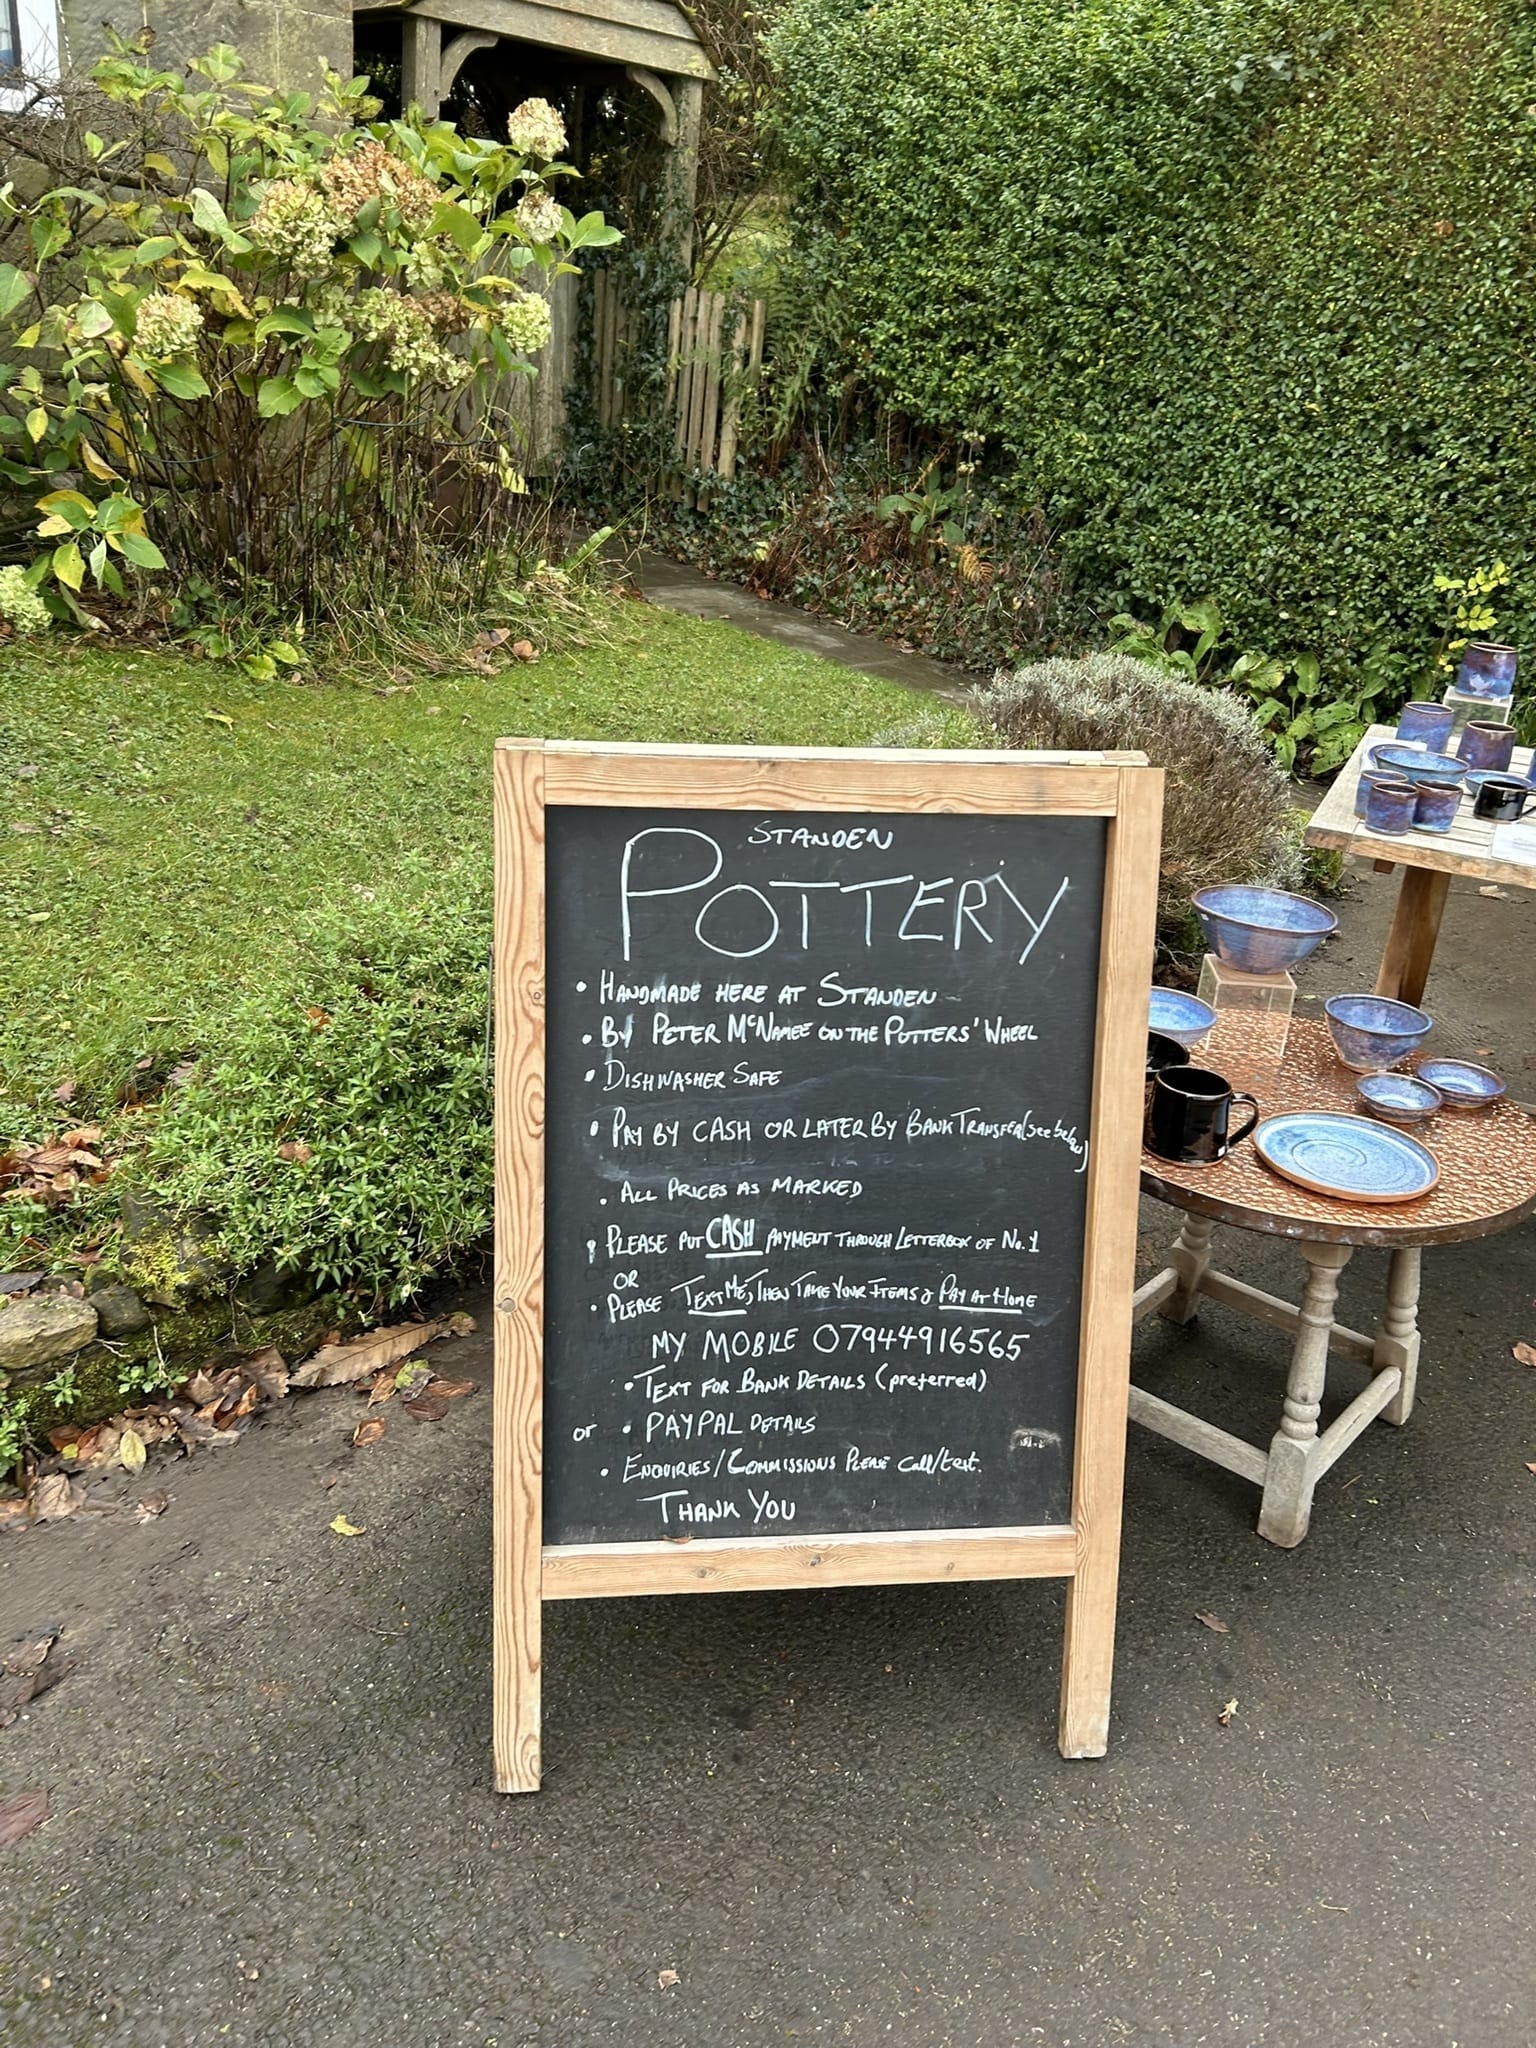 STANDEN
POTTERY
• HANDMADE HERE AT STANDEN
• BY PETER McNAMEE ON THE POTTERS' WHEEL
• DISHWASHER SAFE
• PAY BY CASH OR LATER BY BANK TRANSFER (see below)
• ALL PRICES AS MARKED
• PLEASE PUT CASH PAYMENT THROUGH LETTERBOX OF No. 1
OR
• PLEASE TEXT ME, THEN TAKE YOUR ITEMS & PAY AT HOME
MY MOBILE 07944916565
• TEXT FOR BANK DETAILS (preferred)
or • PAYPAL DETAILS
• ENQUIRIES/COMMISSIONS PLEASE call/text.
THANK YOU